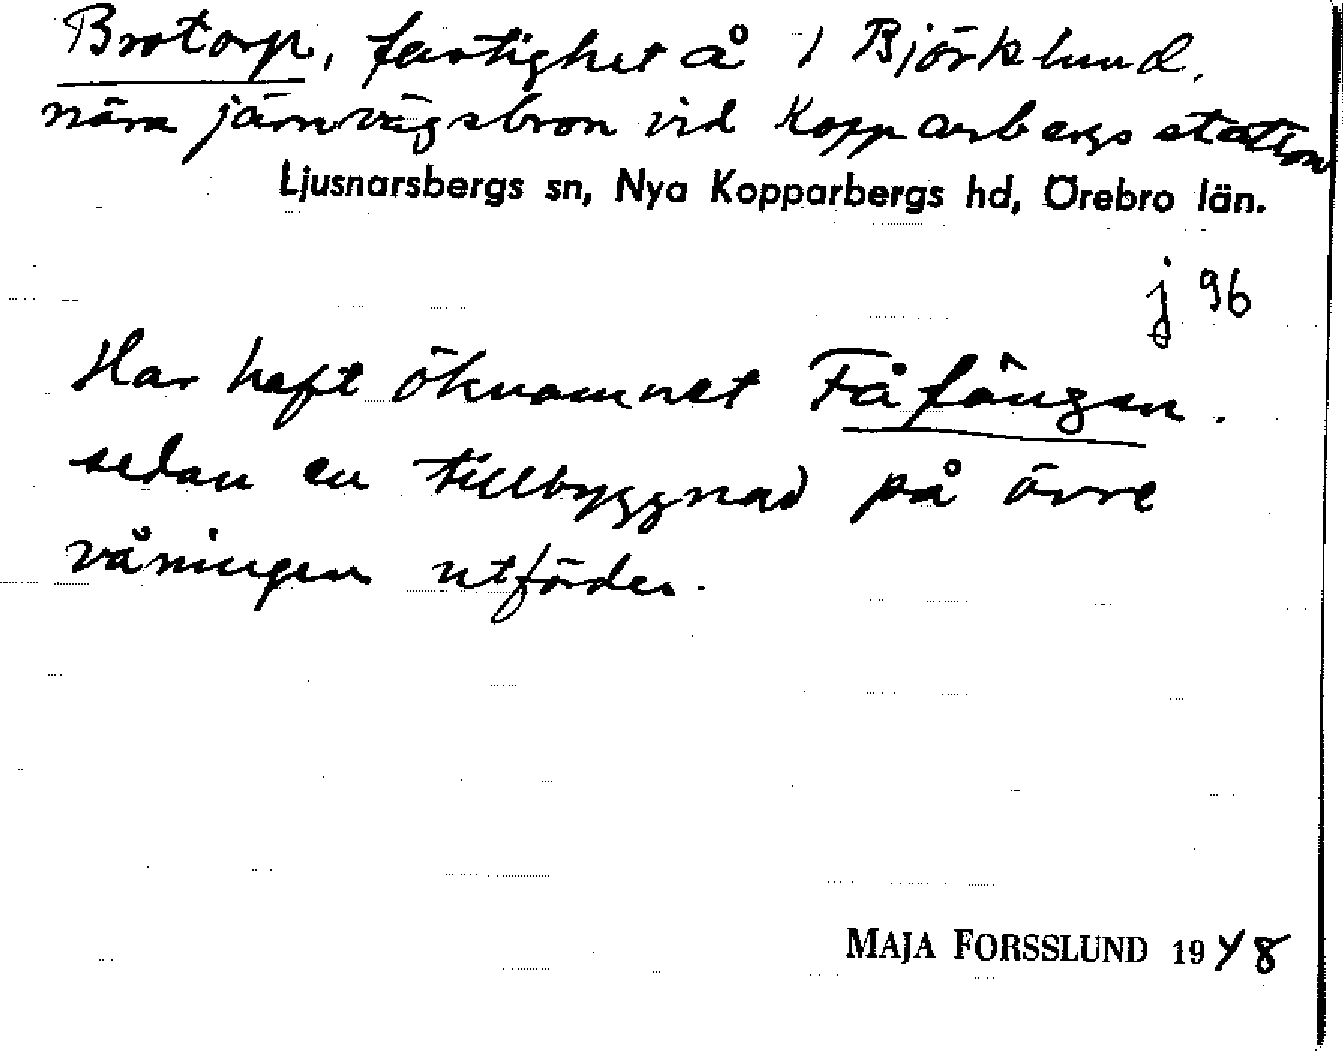 Brotorp, fastighet å 1 Björklund,
nära järnvägsbron vid Kopparbergs station
Ljusnarsbergs sn, Nya Kopparbergs hd, Örebro län.
j 96
Har haft öknamnet Fåfängan.
sedan en tillbyggnad på övre
våningen utfördes.
MAJA FORSSLUND 1948